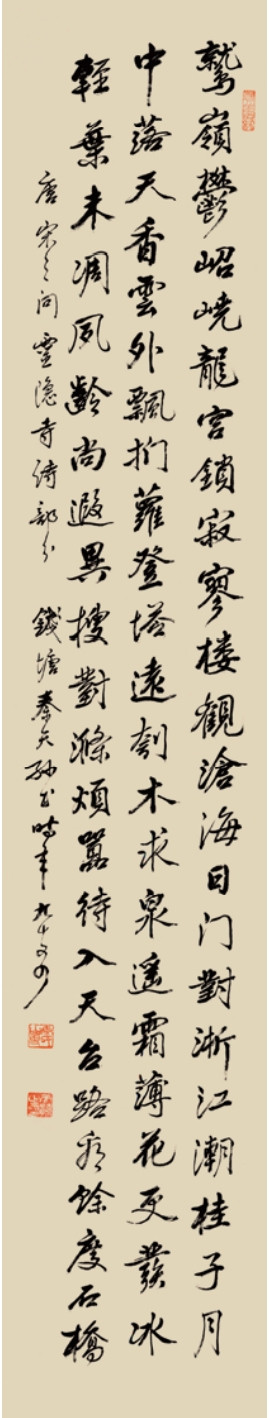 鹫嶺鬱岧嶢龍宮鎖寂寥楼觀滄海日门對浙江潮桂子月
中落天香雲外飄捫蘿登塔遠刳木求泉遥霜薄花更發冰
輕葉未凋夙齡尚遐異搜對滌煩嚣待入天台路看余度石橋
唐宋之问靈隐寺詩部分 錢塘秦天孙书時年九十又四